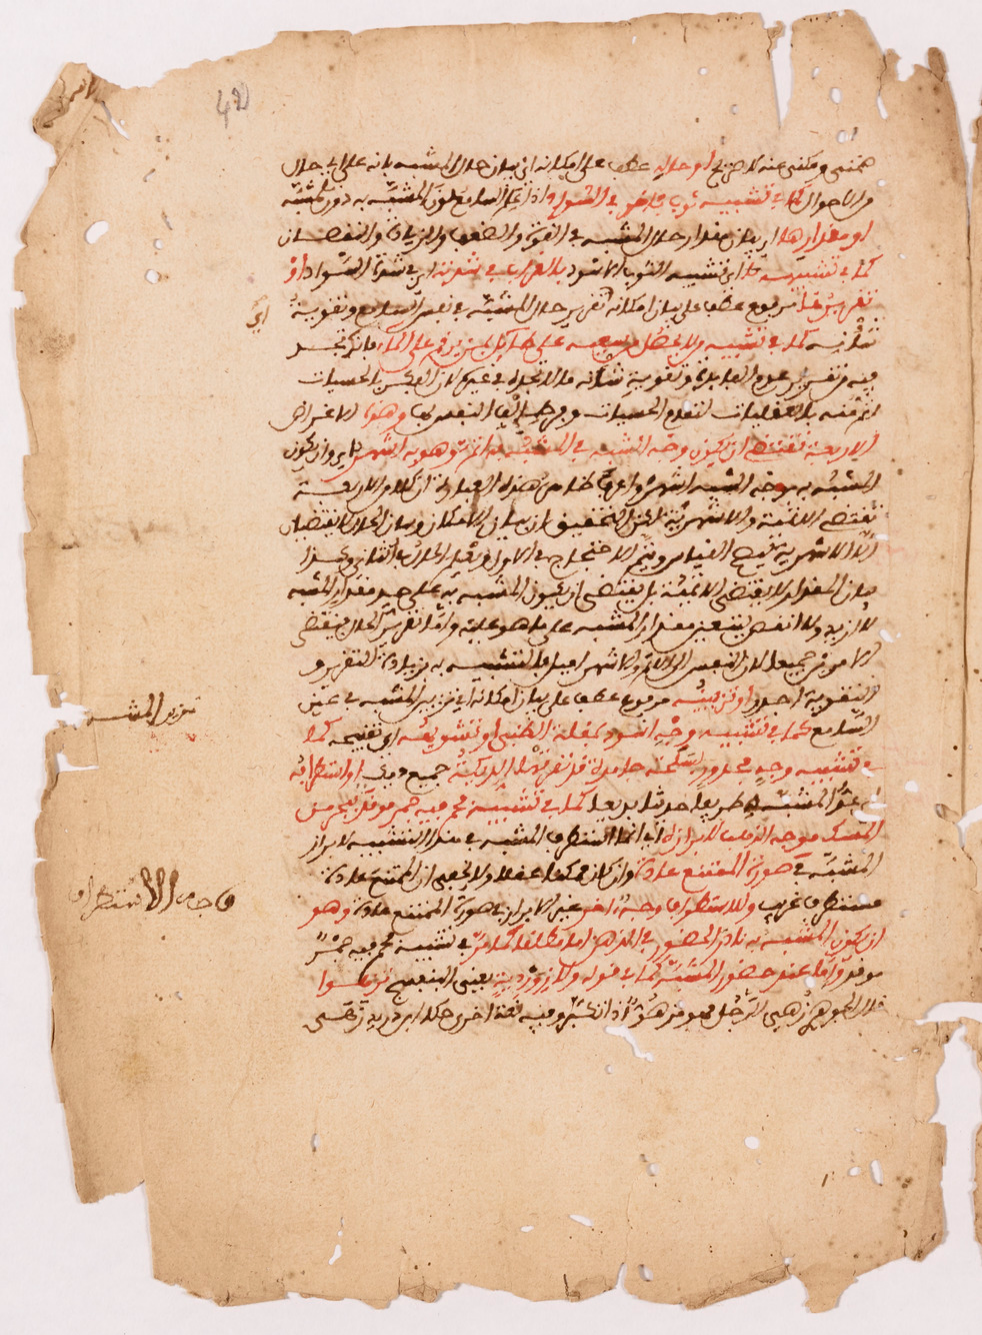 ضمنى ومكنى عنه لا صريح او حاله عطف على امكانه اى بيان حال المشبه بانه على اى حال
من الاحوال كما فى تشبيه ثوب بآخر فى السواد اذا علم السامع لون المشبه به دون المشبه
او مقدارها اى بيان مقدار حال المشبه فى القوة والضعف والزيادة والنقصان
كما فى تشبيهه اى تشبيه الثوب الاسود بالغراب فى شدته اى فى شدة السواد او
تقريرها مرفوع عطف على بيان امكانه اى تقرير حال المشبه فى نفس السامع وتقوية
شأنه كما فى تشبيه من لا يحصل من سعيه على طائل بمن يرقم على الماء فانك تجد
فيه من تقرير عدم الفائدة وتقوية شأنه ما لا تجده فى غيره لان الفكر بالحسيات
اتم منه بالعقليات لتقدم الحسيات وفرط الف النفس بها وهذه الاغراض
الاربعة تقتضى ان يكون وجه الشبه فى المشبه به اتم وهو به اشهر اى وان يكون
المشبه به بوجه الشبه اشهر واعرف ظاهر هذه العبارة ان كلا من الاربعة
تقتضى الاتمية والاشهرية لكن التحقيق ان بيان الامكان وبيان الحال لا يقتضيان
الا الاشهرية ليصح القياس ويتم الاحتجاج فى الاول ويعلم الحال فى الثانى وكذا
بيان المقدار لا يقتضى الاتمية بل يقتضى ان يكون المشبه به على حد مقدار المشبه
لا ازيد ولا انقص ليتعين مقدار المشبه على ما هو عليه واما تقرير الحال فيقتضى
الامرين جميعا لان النفس الى الاتم والاشهر اميل فالتشبيه به بزيادة التقرير و
التقوية اجدر او تزيينه مرفوع عطف على بيان امكانه اى تزيين المشبه فى عين
السامع كما فى تشبيه وجه اسود بمقلة الظبى او تشويهه اى تقبيحه كما
فى تشبيه وجه مجدور بسلحة جامدة قد نقرتها الديكة جمع ديك او استطرافه
اى عد المشبه طريفا حديثا بديعا كما فى تشبيه فحم فيه جمر موقد ببحر من
المسك موجه الذهب لابرازه اى انما استطرف المشبه فى هذا التشبيه لابراز
المشبه فى صورة الممتنع عادة وان كان ممكنا عقلا ولا يخفى ان الممتنع عادة
مستطرف غريب وللاستطراف وجه آخر غير الابراز فى صورة الممتنع عادة وهو
ان يكون المشبه به نادر الحضور فى الذهن اما مطلقا كما مر فى تشبيه فحم فيه جمر
موقد واما عند حضور المشبه كما فى قوله ولازوردية يعنى البنفسج تزهوا
قال الجوهرى زهى الرجل فهو مزهو اذا تكبر وفيه لغة اخرى حكاها ابن دريد زهى
اى
تزيين المشبه
الاستطراف